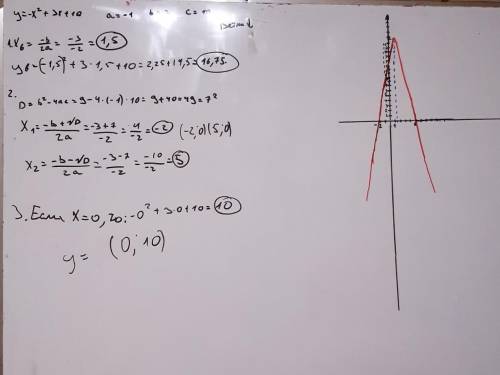 y=-x²+3x+10 a=-1
1. Xв = -b/2a = -3/-2 = 1,5
yв = (-1,5)² + 3·1,5+10 = 2,25+14,5 = 16,75
2.
D = b²-4ac = 9-4·(-1)·10 = 9+40=49=7²
X₁ = -b+√D/2a = -3+7/-2 = 4/-2 = -2 (-2;0)(5;0)
X₂ = -b-√D/2a = -3-7/-2 = -10/-2 = 5
3. Если X=0, то: -0²+3·0+10= 10
y= (0; 10)